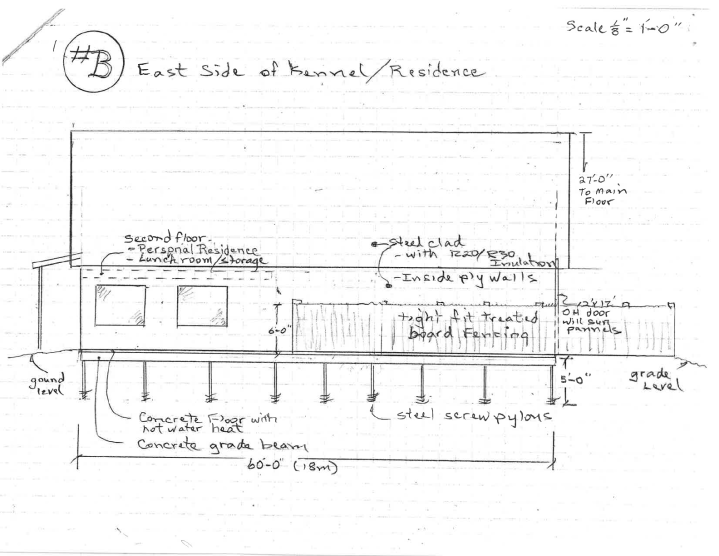 Scale 1/8" = 1'-0"
#B
East Side of Kennel/Residence
27'-0"
To Main
Floor
Second floor.
- Personal Residence
- Lunchroom/storage
Steel clad
- with R20/R30
Insulation
- Inside ply walls
6'-0"
tight fit treated
board Fencing
12'x12'
OH door
will sun
pannels
gound
level
5'-0"
grade
Level
Concrete Floor with
hot water heat
Concrete grade beam
steel screw pylons
60'-0" (18m)